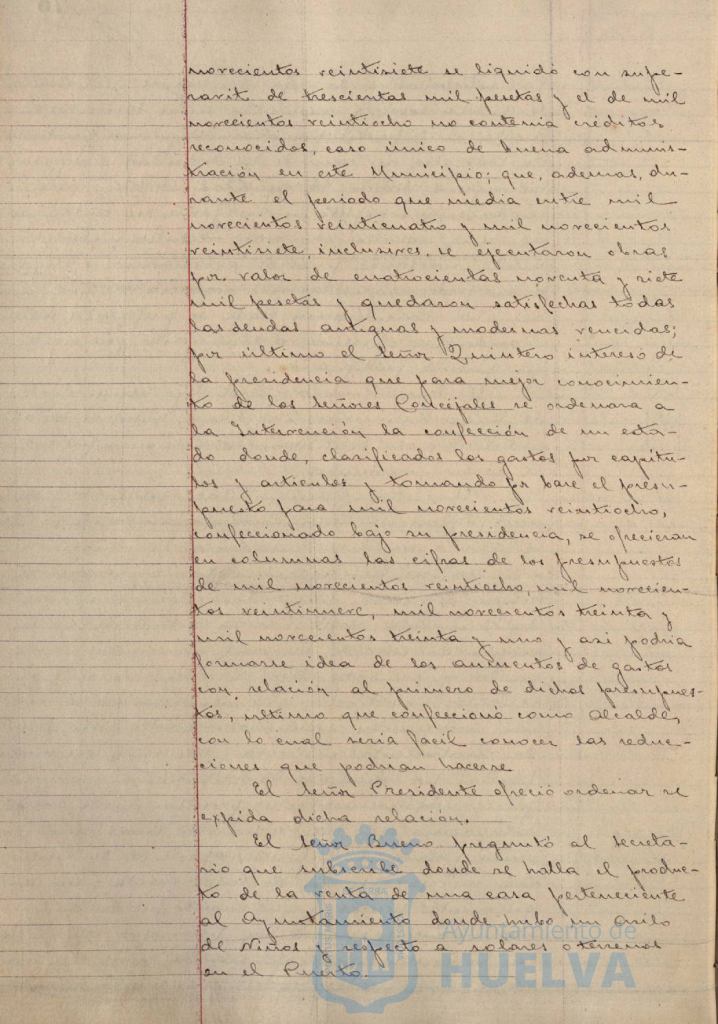 novecientos veintisiete se liquidó con supe-
ravit de trescientas mil pesetas y el de mil
novecientos veintiocho no contenia créditos
reconocidos, caso único de buena adminis-
tración en este Municipio; que, ademas, du-
rante el periodo que media entre mil
novecientos veinticuatro y mil novecientos
veintisiete, inclusives, se ejecutaron obras
por valor de cuatrocientas noventa y siete
mil pesetas y quedaron satisfechas todas
las deudas antiguas y modernas vencidas;
por último el Señor Quintero interesó de
la presidencia que para mejor conocimien-
to de los Señores Concejales se ordenara a
la Intervención la confección de un esta-
do donde, clasificados los gastos por capitu-
los y articulos y tomando por base el presu-
puesto para mil novecientos veintiocho,
confeccionado bajo su presidencia, se ofrecieran
en columnas las cifras de los presupuestos
de mil novecientos veintiocho, mil novecien-
tos veintinueve, mil novecientos treinta y
mil novecientos treinta y uno y asi podria
formarse idea de los aumentos de gastos
con relación al primero de dichos presupues-
tos, ultimo que confeccionó como Alcalde,
con lo cual seria facil conocer las reduc-
ciones que podrian hacerse
El Señor Presidente ofreció ordenar se
expida dicha relación.
El Señor Bueno preguntó al Secreta-
rio que subscribe donde se halla el produc-
to de la venta de una casa perteneciente
al Ayuntamiento donde hubo un Asilo
de Niños y respecto a solares o terrenos
en el Puerto.
Ayuntamiento de
HUELVA